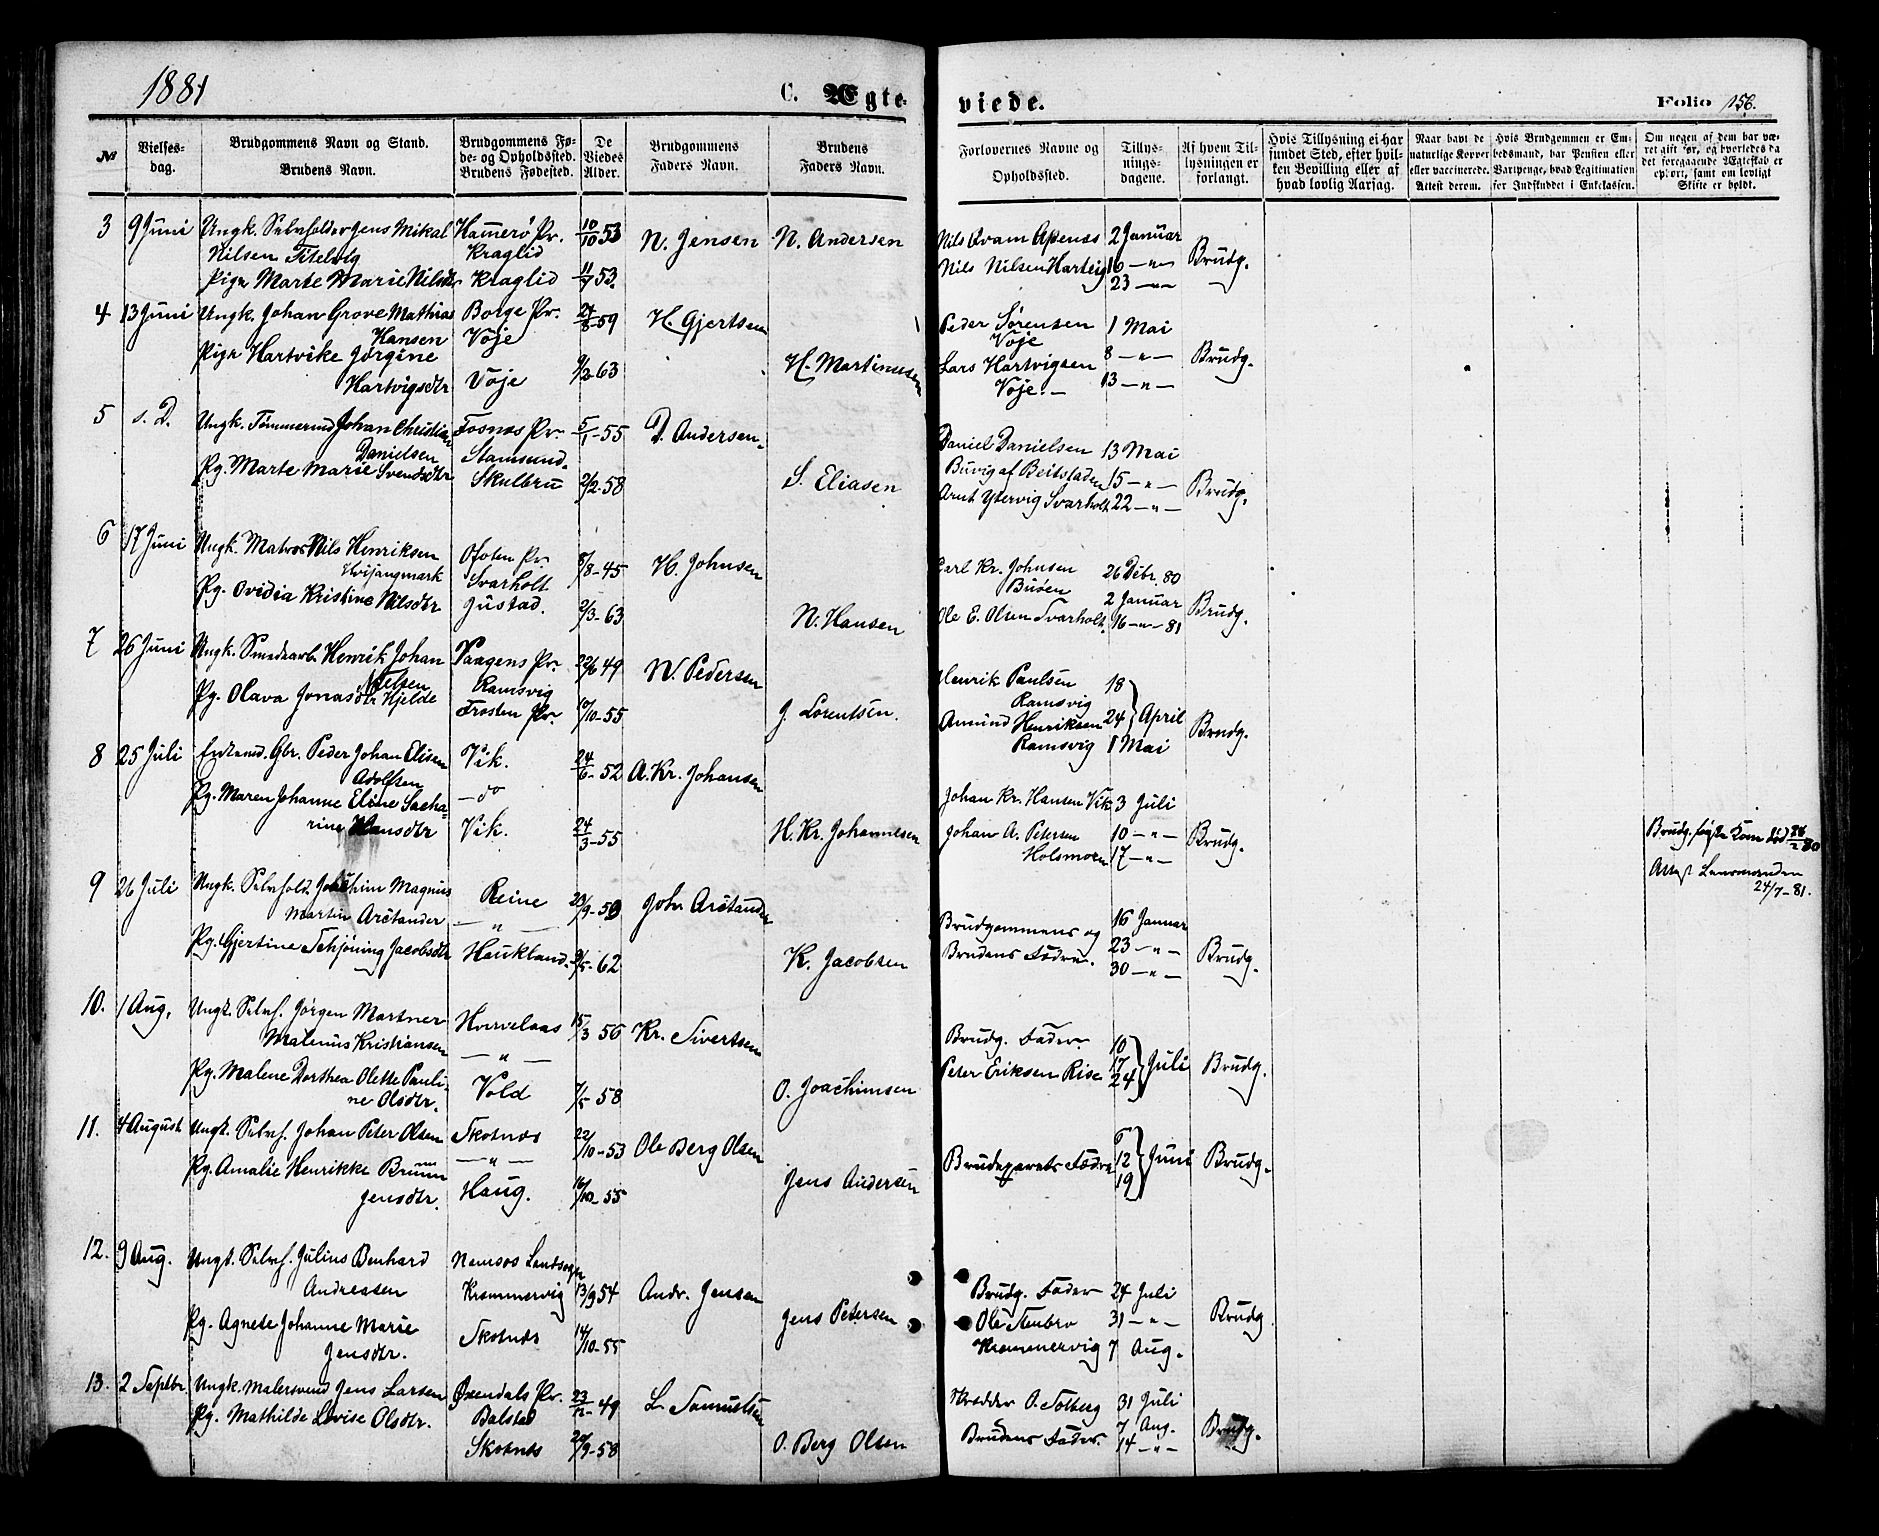 1881
C. Ægte-
viede.
Folio 156.
№
Vielses-
dag.
Brudgommens Navn og Stand.
Brudens Navn.
Brudgommens Fø-
de- og Opholdssted.
Brudens Fødested.
De
Viedes
Alder.
Brudgommens
Faders Navn.
Brudens
Faders Navn.
Forlovernes Navne og
Opholdssted.
Tillys-
nings-
dagene.
Af hvem Til-
lysningen er
forlangt.
Hvis Tillysning ei har
fundet Sted, efter hvil-
ken Bevilling eller af
hvad lovlig Aarsag.
Naar havt de
naturlige Kopper
eller vaccinerede.
Attest derom.
Hvis Brudgommen er Em-
bedsmand, har Pension eller
Vartpenge, hvad Legitimation
for Indskuddet i Enkekassen.
Om nogen af dem har væ-
ret gift før, og hvorledes da
det foregaaende Ægteskab er
ophørt, samt om lovligt
Skifte er holdt.
3 9 Juni Ungk. Selvholder Jens Mikal Hamerø Pr. 10/10 53 N. Jensen N. Andersen Nils Kvam Apenæs 2 Januar Brudg.
Nilsen Kraglid
Pige Marte Marie Nilsdtr Kraglid 11/9 53. Nils Nilsen Hartvig 16 —"—
23 —"—
4 13 Juni Ungk. Johan Grove Mathias Borge Pr. 24/8-59 H. Gjertsen Peder Sørensen 1 Mai
Hansen Vøje Vøje
Pige Hartvike Jørgine H. Martinusen Lars Hartvigsen 8 —"— Brudg.
Hartvigsdtr Vøje 9/2-63 Vøje. — 13 —"—
5 s. D. Ungk. Tømmermd Johan Christian Fosnæs Pr. 5/1-55 D. Andersen Daniel Danielsen 13 Mai
Danielsen Stamsund.
Pg. Marte Marie Svendsdtr Skulbru 2/2-58 S. Eliasen Buvig af Beitstaden 15 —"— Brudg.
Arnt Ytervig Svarholt 22 —"—
6 17 Juni Ungk. Matros Nils Henriksen Ofoten Pr. 8/8-45 H. Johnsen Carl Kr. Johnsen 26 Debr. 80
Svarholt Busen 2 Januar
Pg. Ovidia Kristine Nilsdtr Justad. 2/3-63 N. Hansen Ole E. Olsen Svarholt. 16 —"— 81 Brudg.
7 26 Juni Ungk. Smedearb. Henrik Johan Vaagens Pr. 22/6 49 N. Pedersen Henrik Paulsen 18
Nilsen Ramsvig Ramsvig
Pg. Olava Jonasdtr Hjelde Frosten Pr. 10/10-55 J. Lorentsen. Amund Henriksen 24 April Brudg.
Ramsvig 1 Mai
8 25 Juli Enkemd. Gbr. Peder Johan Elisen Vik. 24/6-52 A. Kr. Johansen
Adolfsen — do
Pg. Maren Johanne Eline Sacha- Johan Kr. Hansen Vik 3 Juli
rine Hansdtr Vik. 24/3-55 H. Kr. Johannesen Johan A. Petersen 10 —"— Brudg. Brudg. første Kone død 26/2 80
Holsmoen 17 —"— Attest Lensmanden
24/7-81.
9 26 Juli Ungk. Selvhold. Joachim Magnus Reine 23/9-59 Joh. Arctander
Martin Arctander —"— Brudgommens og 16 Januar
Pg. Gjertine Schjöning Jacobsdtr Haukland. 9/5-62 K. Jacobsen Brudens Fædre. 23 —"— Brudg.
30 —"—
10. 1 Aug. Ungk. Selvf. Jørgen Martner Hvervelaas 15/3 56 Kr. Sivertsen Brudg. Fader 10
Malenius Kristiansen —"—
Pg. Malene Dorthea Olette Pauli- Vold 7/5-58 O. Joachimsen Peter Eriksen Rise 17 24 Juli Brudg.
ne Olsdtr.
11. 4 August Ungk. Selvf. Johan Peter Olsen Skotnæs 22/10-53 Ole Berg Olsen 6
—"—
Pg. Amalie Henrikke Bruun Haug. 16/10-55 Jens Andersen Brudeparrets Fædre 12 Juni Brudg.
Jensdtr. 19
12. 9 Aug. Ungk. Selvf. Julius Benhard Namsos Landsogn
Andreasen Krammervig 13/9 54 Andr. Jensen Brudg. Fader 24 Juli
Pg. Agnete Johanne Marie Skotnæs 14/10-55 Jens Petersen Ole Stenbro 31 —"— Brudg.
Jensdtr. Krammervig 7 Aug.
13. 2 Septbr. Ungk. Malersvend Jens Larsen Øxendals Pr. 23/12-49 L. Samuelsen O. Solberg 31 Juli
Pg. Mathilde Lovise Olsdtr. Balstad Brudens Fader. 7 Aug. Brudg.
Skotnæs 20/9-58 O. Berg Olsen 14 —"—